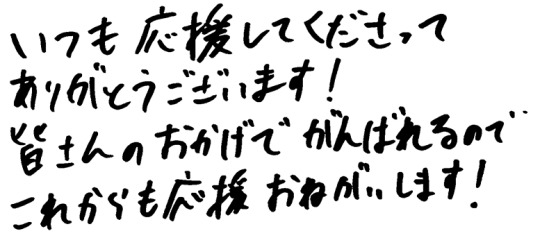 いつも応援してくださって
ありがとうございます!
皆さんのおかげでがんばれるので
これからも応援おねがいします!